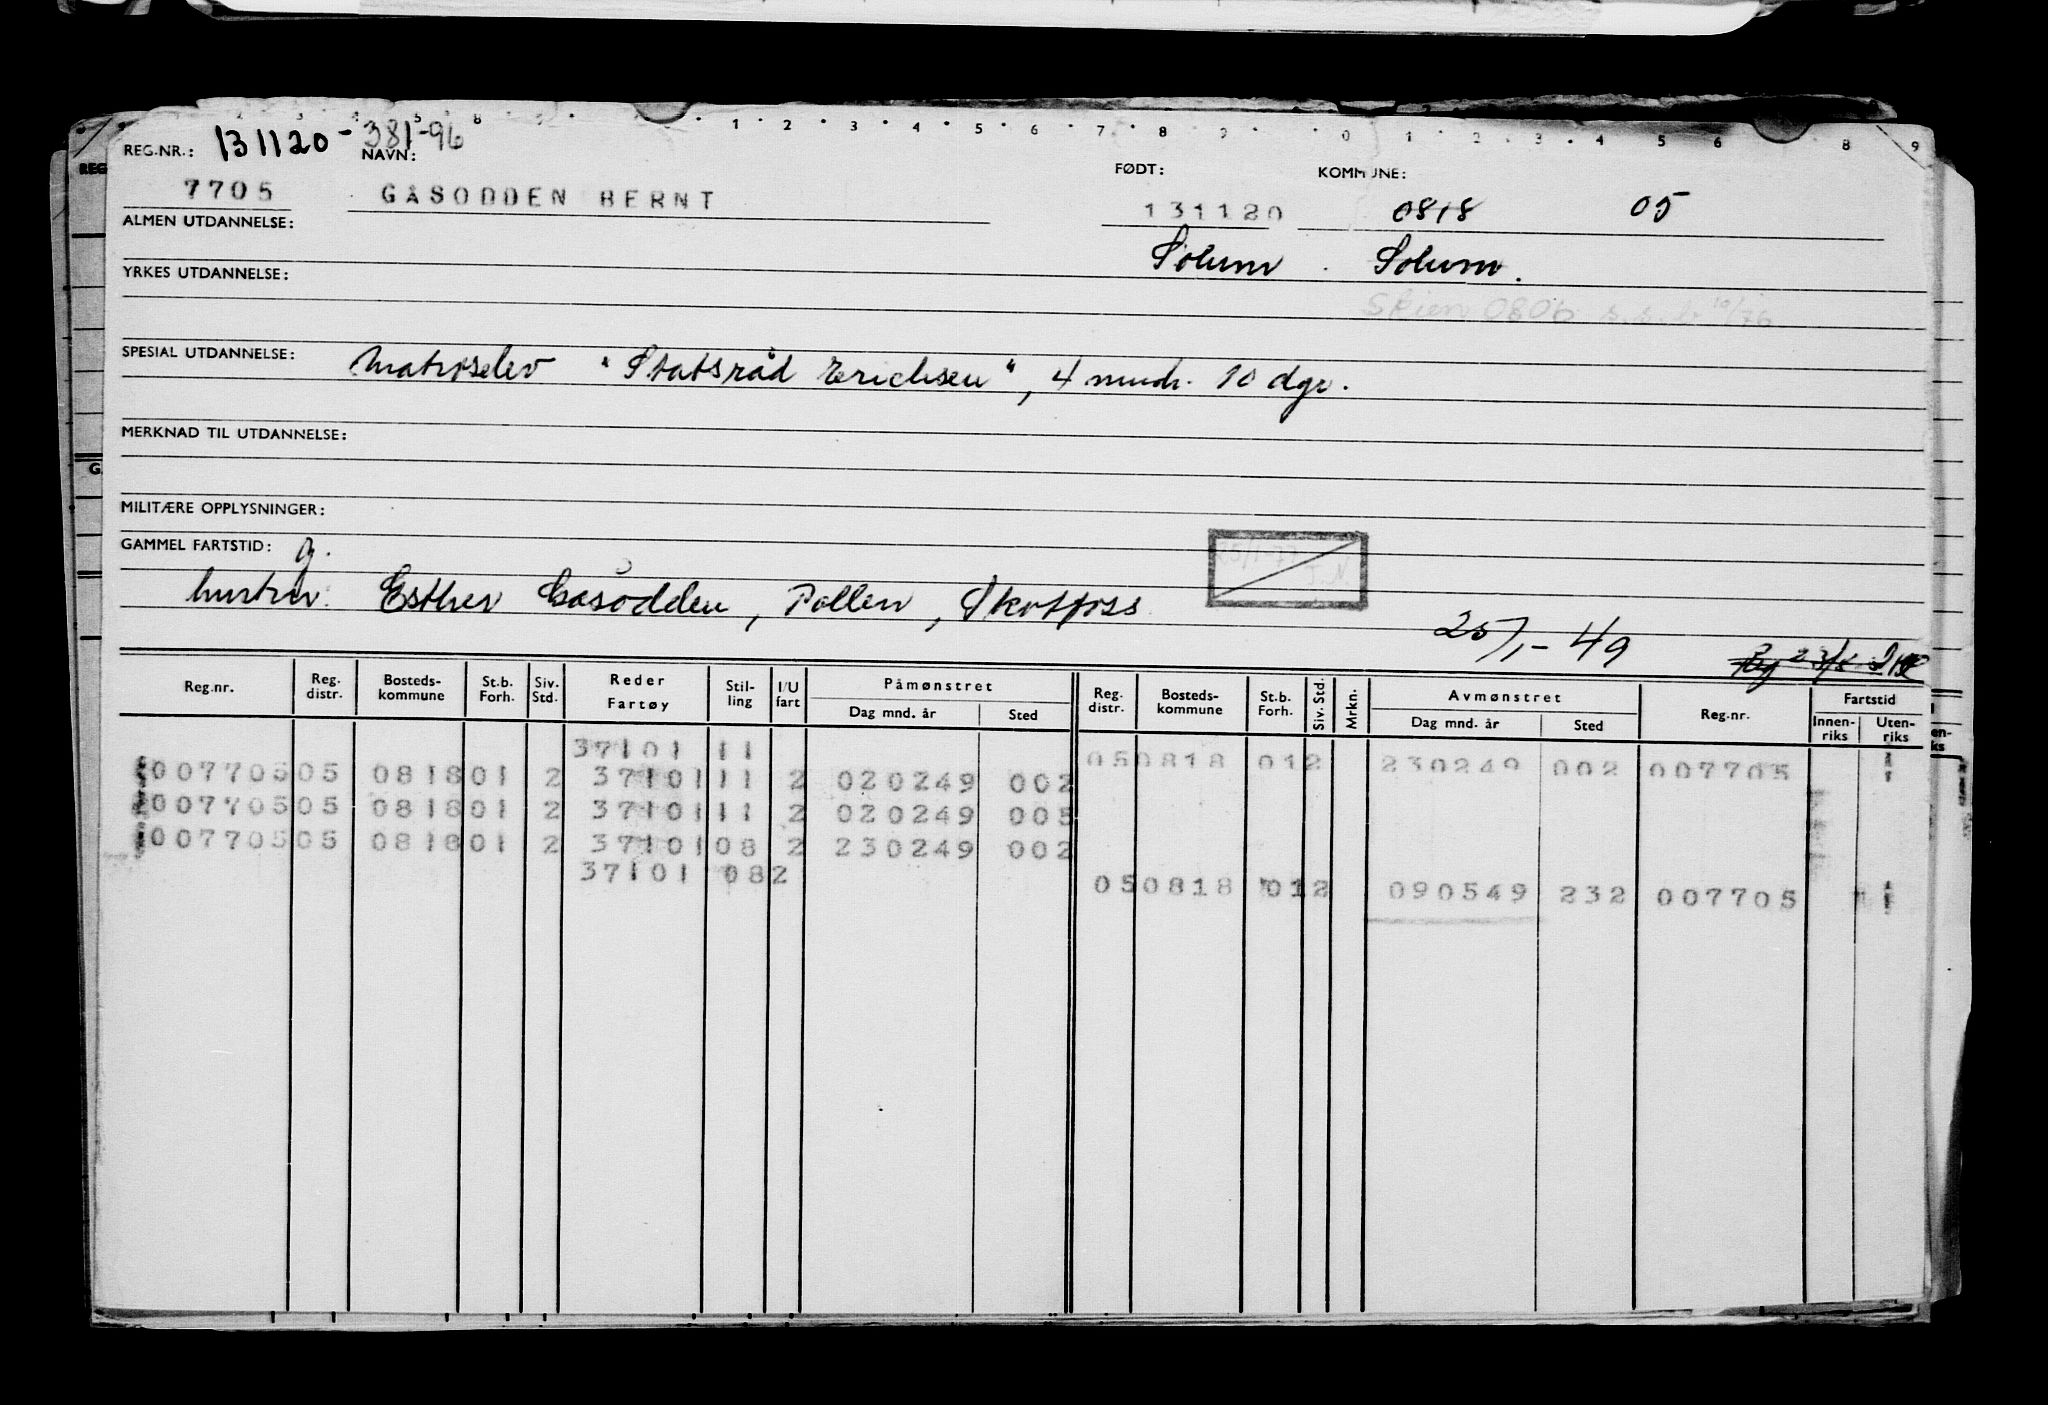 REG.NR.: 131120- 381-96
NAVN: FØDT: KOMMUNE:
7705 GÅSODDEN BERNT 131120 0818 05
ALMEN UTDANNELSE:
Solum . Solum.
YRKES UTDANNELSE:
Skien 0806 10/76
SPESIAL UTDANNELSE: Matroselev "Statsråd Erichsen", 4 mndr. 10 dgr.
MERKNAD TIL UTDANNELSE:
MILITÆRE OPPLYSNINGER:
GAMMEL FARTSTID: g.
25/1-77
J.N.
hustru: Esther Gåsodden, Pollen, Skotfoss
25/1-49
Reg.nr. Reg. distr. Bosteds-kommune St.b. Forh. Siv. Std. Reder Fartøy Stil-ling I/U fart Påmønstret Dag mnd. år Sted Reg. distr. Bosteds-kommune St.b. Forh. Siv. Std. Mrkn. Avmønstret Dag mnd. år Sted Reg.nr. Fartstid Innen-riks Uten-riks
37101 11 050818 012 230249 002 007705
007705 05 0818 01 2 37101 11 2 020249 002
007705 05 0818 01 2 37101 11 2 020249 005
007705 05 0818 01 2 37101 08 2 230249 002
37101 082 050818 012 090549 232 007705